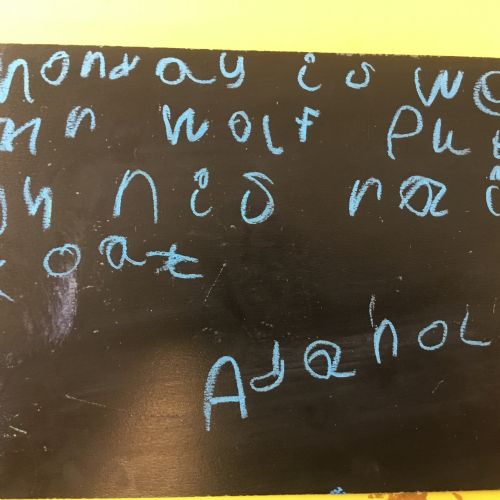 monday is we
wolf Put
on nis rai
coat
Adanol